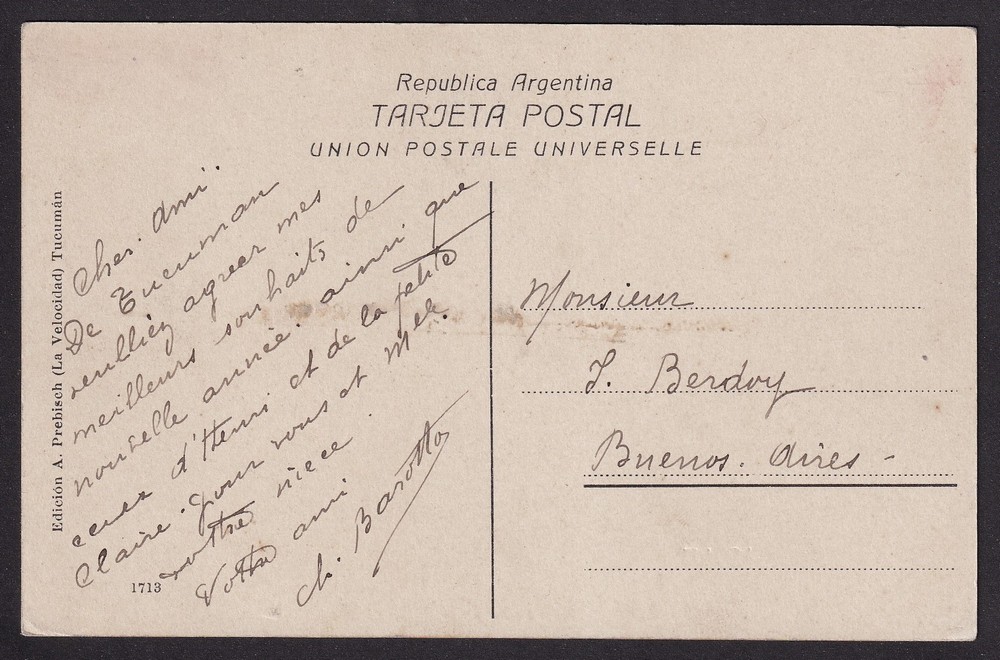 Republica Argentina
TARJETA POSTAL
UNION POSTALE UNIVERSELLE
Edición A. Prebisch (La Velocidad) Tucumán
1713
Cher. Ami.
De Tucuman
veulliez agreer mes
meilleurs souhaits de
nouvelle année. ainsi que
ceux d'Henri et de la petite
Claire. pour vous et Mlle.
vottre niece.
Vottre ami
Ch. Barotto
Monsieur
J. Berdoy
Buenos. Aires -